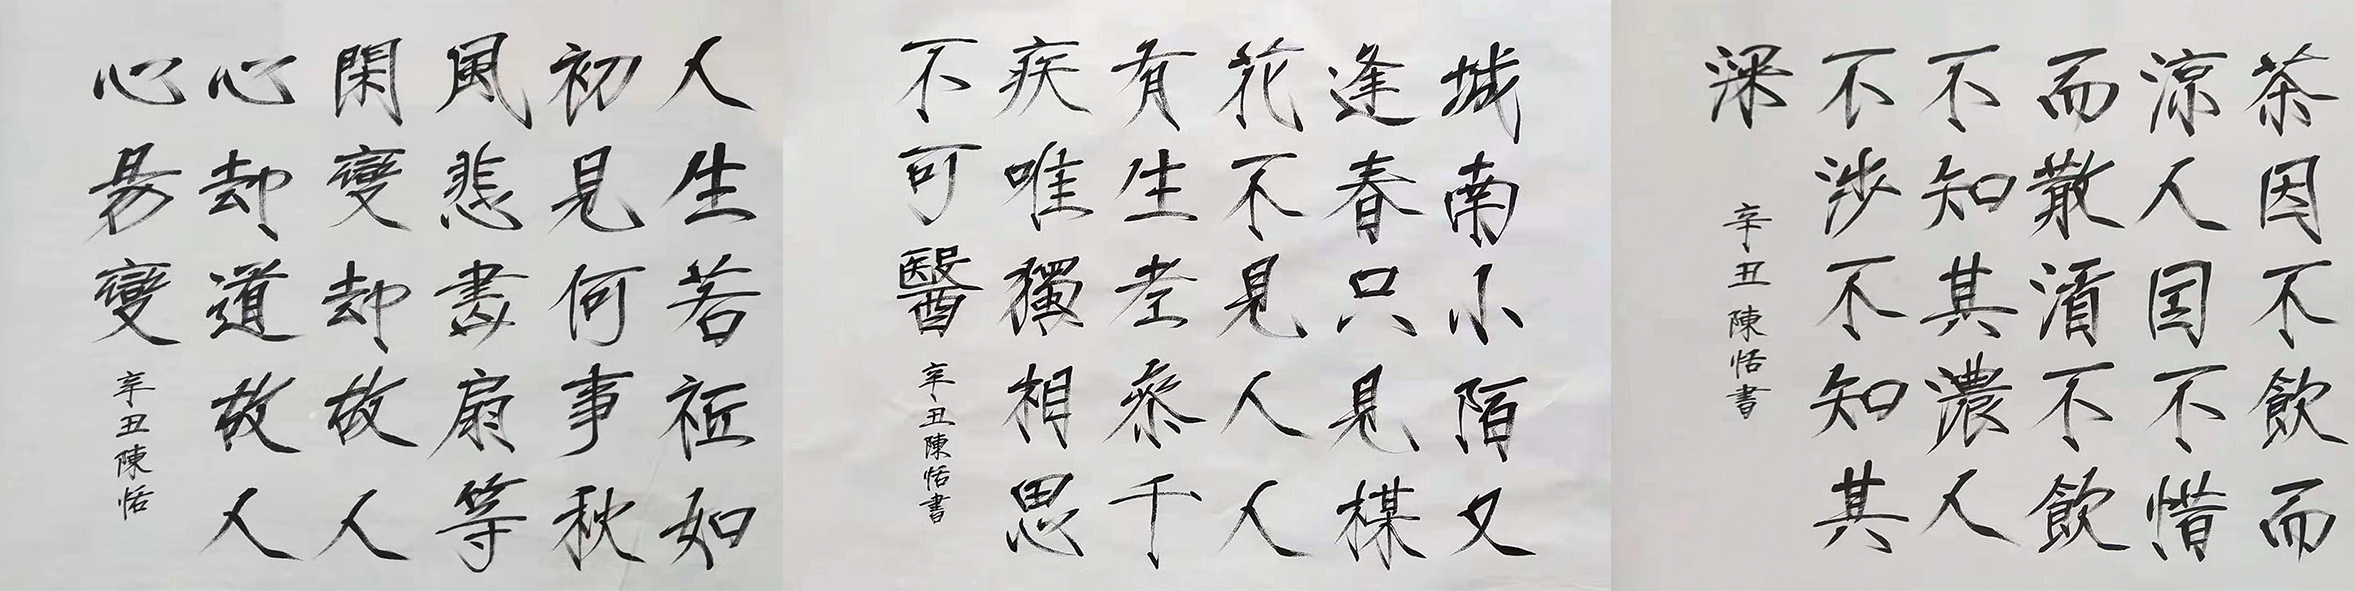 人生若祗如
初見何事秋
風悲畫扇等
閑變却故人
心却道故人
心易變
辛丑陳恬
城南小陌又
逢春只見楳
花不見人人
有生老參千
疾唯獨相思
不可醫
辛丑陳恬書
茶因不飲而
涼人因不惜
而散酒不飲
不知其濃人
不涉不知其
深
辛丑陳恬書